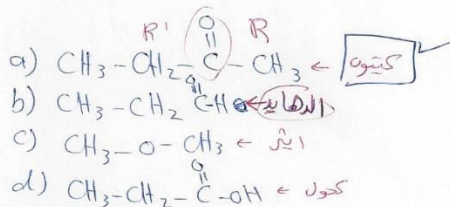 R' O R
a) CH3-CH2-C-CH3 ← كيتون
O
b) CH3-CH2 C-H ← الدهايد
c) CH3-O-CH3 ← ايثر
O
d) CH3-CH2-C-OH ← كحول